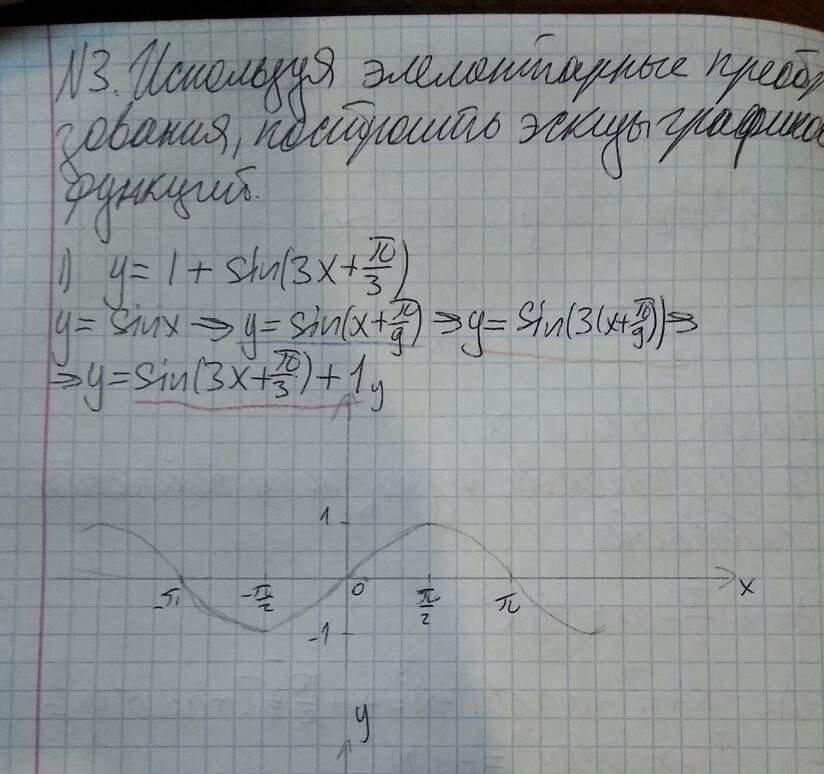 N3. Используя элементарные преобр
зования, построить эскизы графиков
функций.
1) y = 1 + sin(3x + π/3)
y = sinx ⇒ y = sin(x + π/9) ⇒ y = sin(3(x + π/9)) ⇒
⇒ y = sin(3x + π/3) + 1
y
1
-π -π/2 0 π/2 π x
-1
y